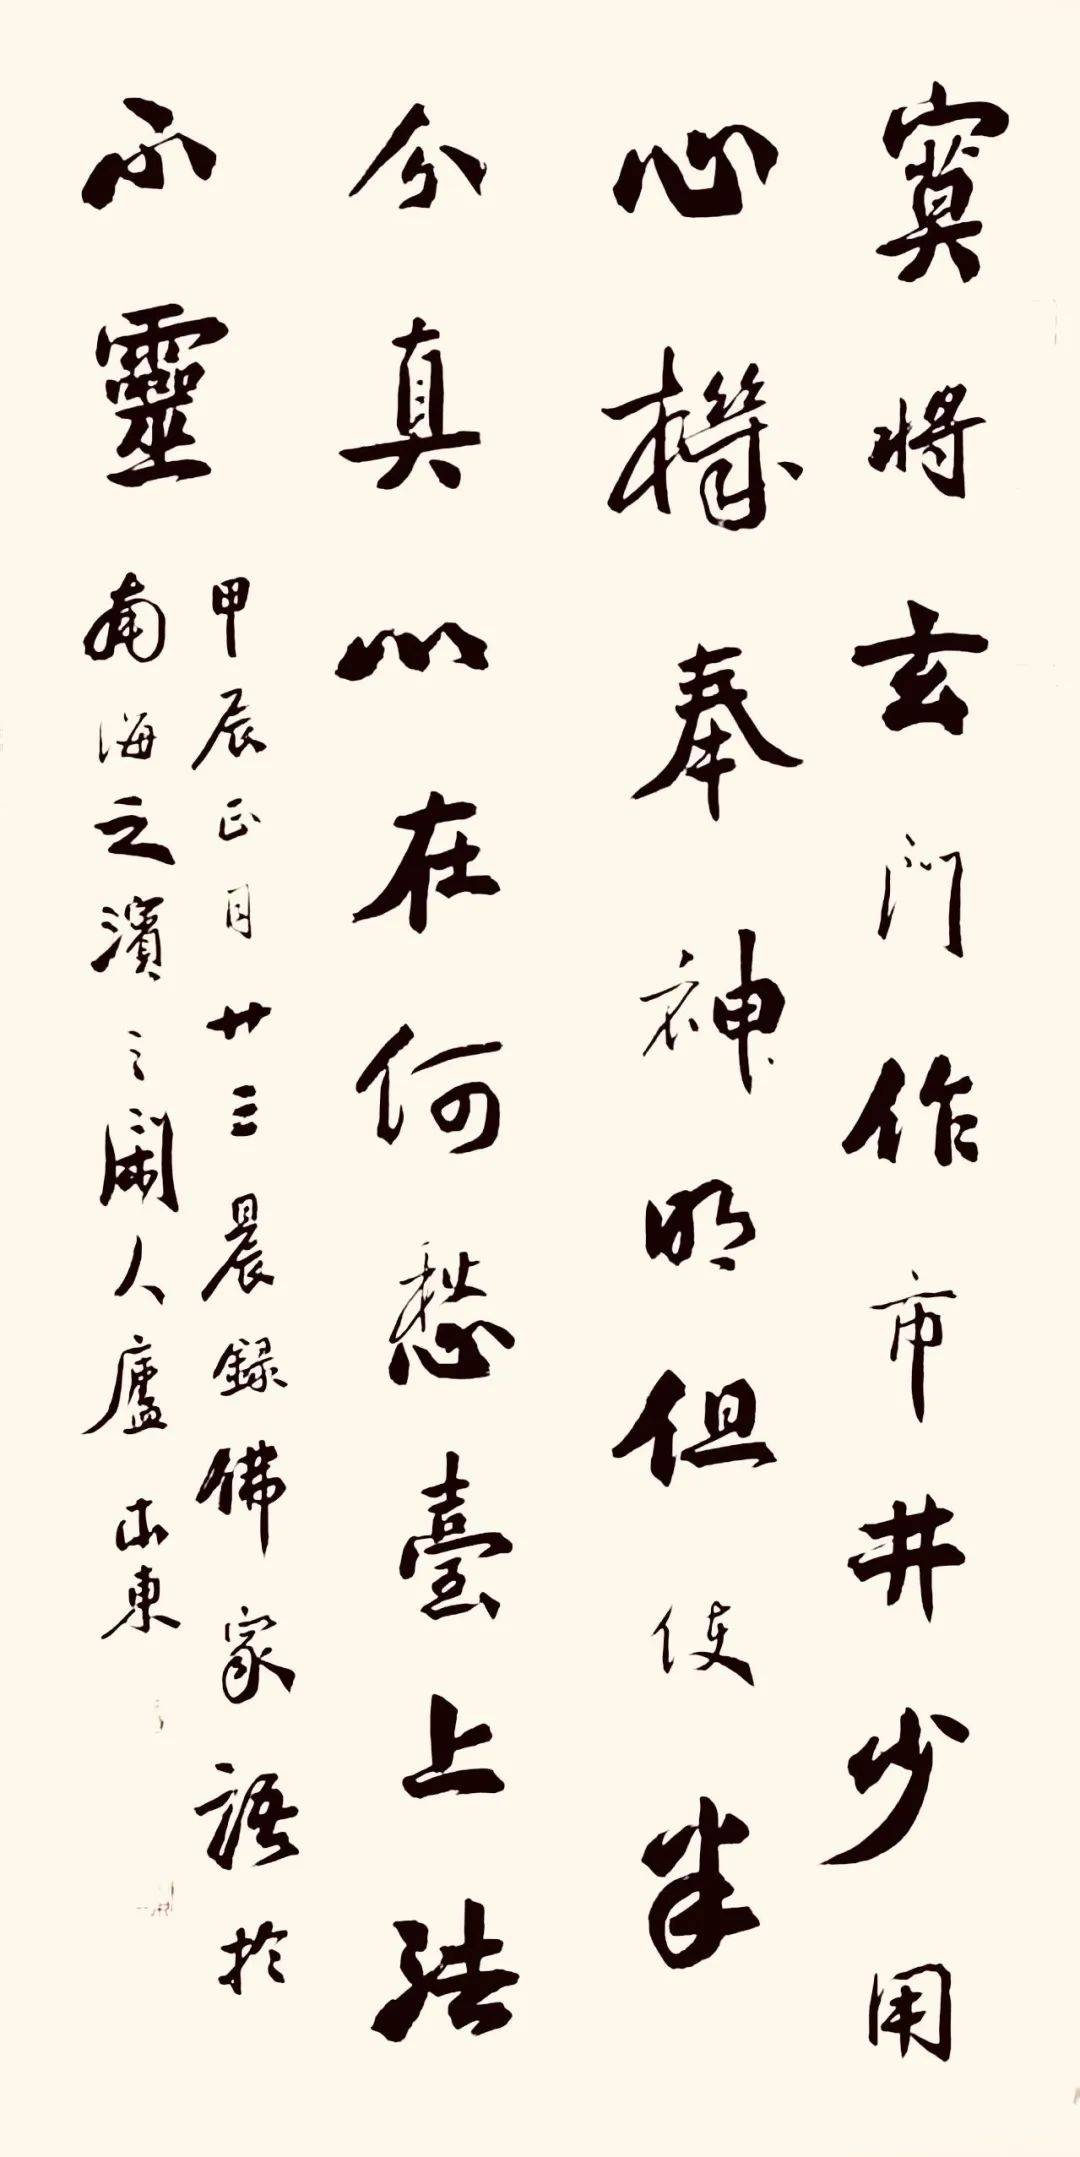 寞將玄門作市井少用
心機奉神明但使半
分真心在何愁臺上法
不靈
甲辰正月廿三晨錄佛家語於
南海之濱之人廬東